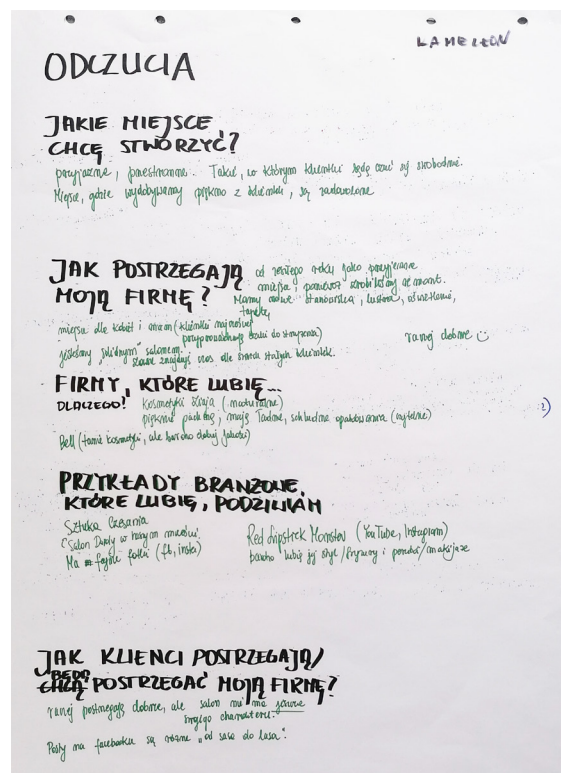 LAMELEON
ODCZUCIA
JAKIE MIEJSCE
CHCĘ STWORZYĆ?
przyjazne, przestrzenne. Takie, w którym klientki będę czuć się swobodnie.
Miejsce, gdzie wydobywamy piękno z klientek, są zadowolone
JAK POSTRZEGAJĄ
MOJĄ FIRMĘ?
od zeszłego roku jako przyjazne
miejsce, ponieważ zrobiliśmy remont.
Mamy nowe stanowiska, lustra, oświetlenie,
tapetę,
miejsce dla kobiet i (klientki najczęściej
przyprowadzają do strzyżenia)
jesteśmy "solidnym" salonem,
zawsze znajduję czas dla stałych klientek.
raczej dobrze
FIRMY, KTÓRE LUBIĘ...
DLACZEGO?
Kosmetyki Ziaja (naturalne)
pięknie pachną, mają ładne, schludne opakowania (czytelne)
Bell (tanie kosmetyki, ale bardzo dobrej jakości)
PRZYKŁADY BRANŻOWE,
KTÓRE LUBIĘ, PODZIWIAM
Sztuka Czesania
(Salon Damy w naszym mieście)
Ma fajne fotki (fb, insta)
Red Lipstick Monster (YouTube, Instagram)
bardzo lubię jej styl/fryzury i porady/makijaże
JAK KLIENCI POSTRZEGAJĄ/
BĘDĄ
CHCĄ POSTRZEGAĆ MOJĄ FIRMĘ?
raczej postrzegają dobrze, ale salon nie ma jeszcze
swojego charakteru.
Posty na facebooku są różne "od sasa do lasa".